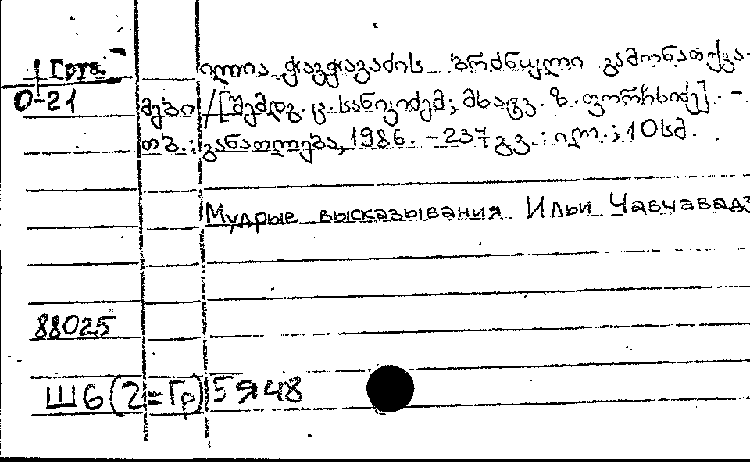 Груз.
0-21
ილია ჭავჭავაძის ბრძნული გამონათქვა-
მები /[შემდგ. ც. სანიკიძემ; მხატვ. ზ. ფორჩხიძე]. -
თბ.: განათლება, 1986. - 237 გვ.: ილ.; 10 სმ.
Мудрые высказывания Ильи Чавчавадз
88025
Ш6(2=Гр)5я48